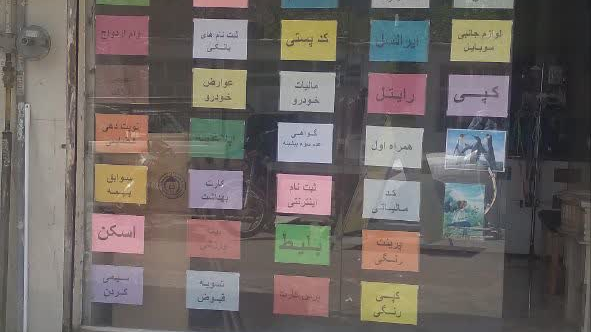 لوازم جانبی
موبایل
ایرانسل
کد پستی
ثبت نام های
بانکی
وام ازدواج
کپی
رایتل
مالیات
خودرو
عوارض
خودرو
همراه اول
گواهی
عدم سوء پیشینه
نوبت دهی
کد
مالیاتی
ثبت نام
اینترنتی
کارت
بهداشت
سوابق
بیمه
پرینت
رنگی
بلیط
اسکن
کپی
رنگی
تسویه
قبوض
سیمی
کردن